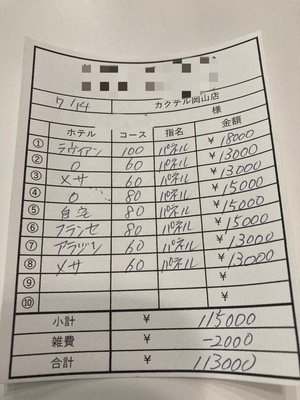 7/14 カクテル岡山店
様
ホテル コース 指名 金額
① ラヴィアン 100 パネル ¥18000
② O 60 パネル ¥13000
③ メサ 60 パネル ¥13000
④ O 80 パネル ¥15000
⑤ 自宅 80 パネル ¥15000
⑥ フランセ 80 パネル ¥15000
⑦ アラジン 60 パネル ¥13000
⑧ メサ 60 パネル ¥13000
⑨ ¥
⑩ ¥
小計 ¥ 115000
雑費 ¥ -2000
合計 ¥ 113000